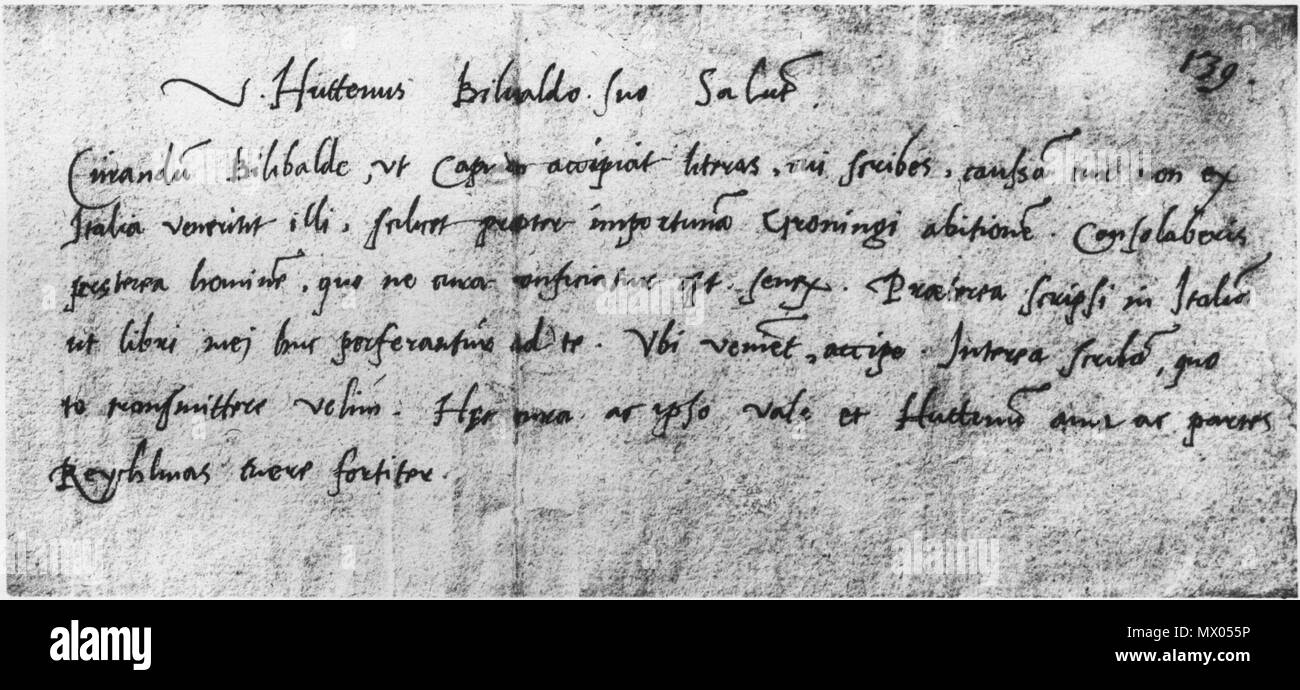 139.
V. Huttenus Bilibaldo suo Salutē.
Curandū Bilibalde, ut accipiat literas, cui scribes, caussā non ex
Italia venerint illi, scilicet propter importunā Groningi abitionē. Consolaberis
preterea hominē, quo ne cura conficiatur est senex. Praeterea scripsi in Italiā
ut libri mei huc perferantur ad te. Ubi venient, accipe. Interea scribā, quo
te transmittere velim. Hęc cura ac ipse vale et Huttenū ama ac partes
Reychlinas tuere fortiter.
alamy
Image ID: MX055P
www.alamy.com